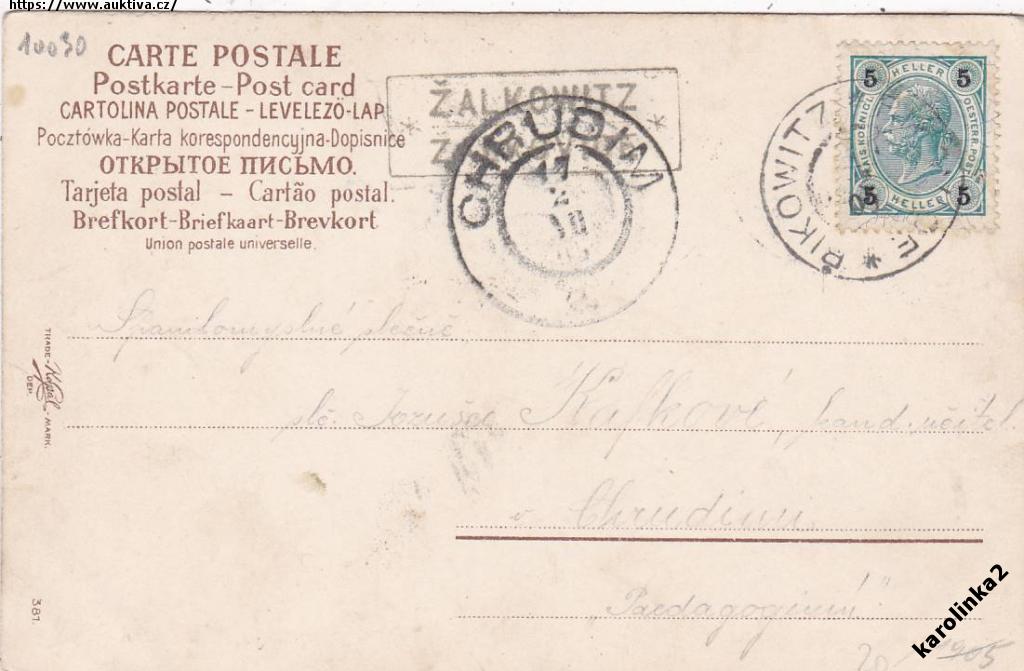 https://www.auktiva.cz/
10030
CARTE POSTALE
Postkarte-Post card
CARTOLINA POSTALE - LEVELEZŐ-LAP
Pocztówka-Karta korespondencyjna-Dopisnice
ОТКРЫТОЕ ПИСЬМО.
Tarjeta postal - Cartão postal.
Brefkort-Briefkaart-Brevkort
Union postale universelle.
ŽALKOWITZ
CHRUDIM
17
5 HELLER 5
5 HELLER 5
ŘIKOWITZ
TRADE-MARK.
DEP.
slečně
slč. Kafkové,
v Chrudimi
"Paedagogium"
381.
1905
karolinka2